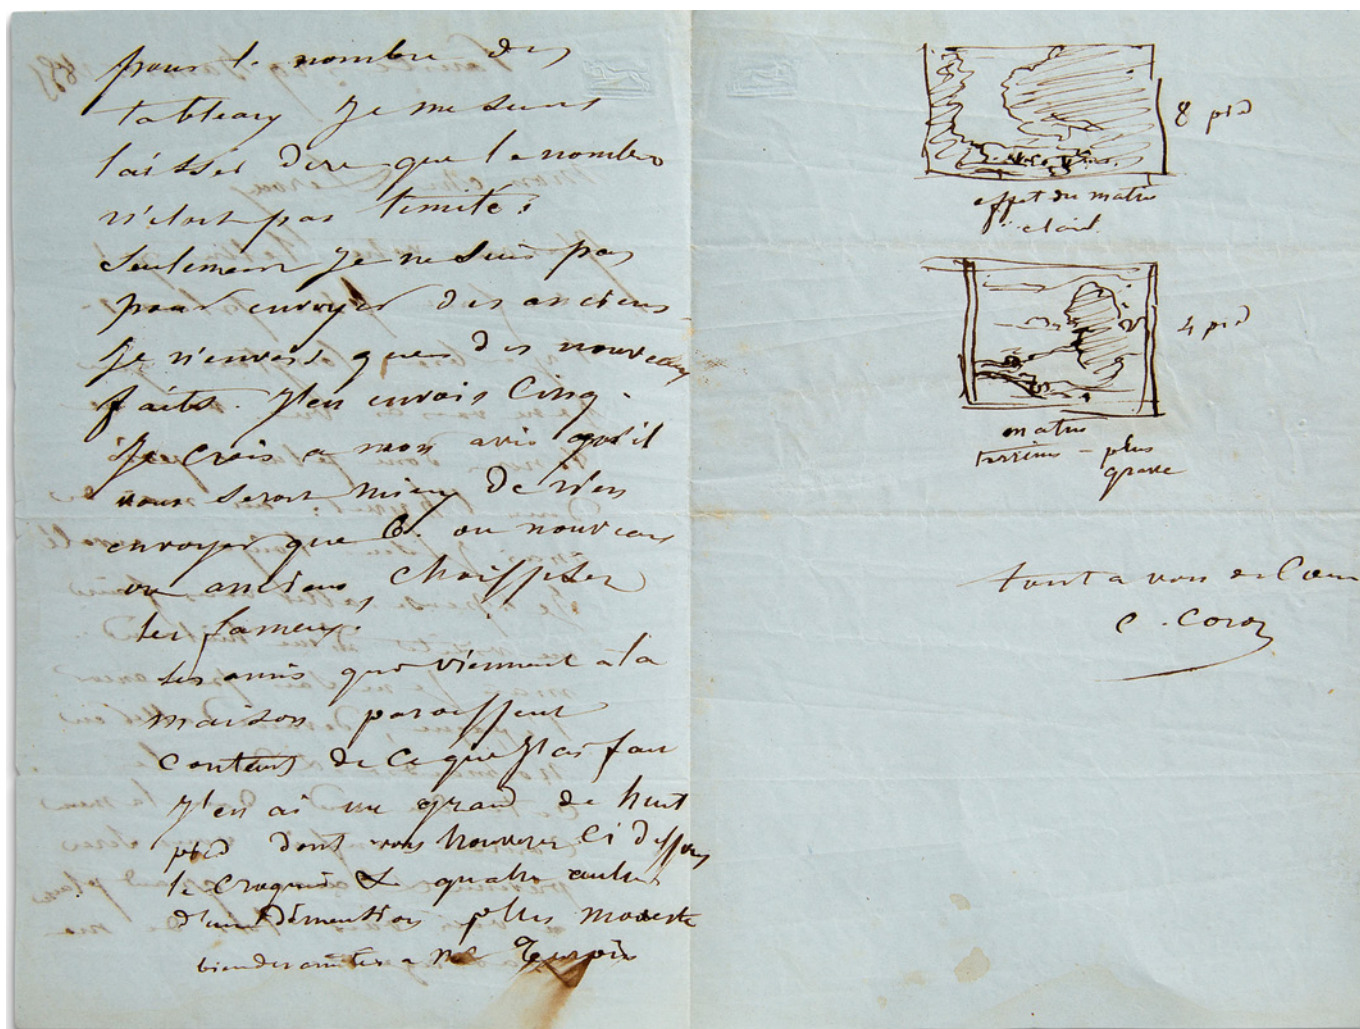 pour le nombre des
tableaux je me suis
laissé dire que le nombre
n'étoit pas limité;
seulement je ne suis pas
pour envoyer des anciens
je n'envois que des nouveaux
faits. J'en envois cinq.
Je crois a mon avis qu'il
vous seroit mieux de n'en
envoyer que 6. ou nouveaux
ou anciens, choissiser
les fameux.
Les amis qui viennent à la
maison paroissent
contents de ce que j'ai fait
J'en ai un grand de huit
pied dont vous trouverez ci dessous
le croquis & quatre autres
d'une dimention plus modeste
bien des amitiés a Mr
8 pied
effet du matin
clair.
4 pied
matin
terrains - plus
grave
tout a vous de Coeur
C. Corot